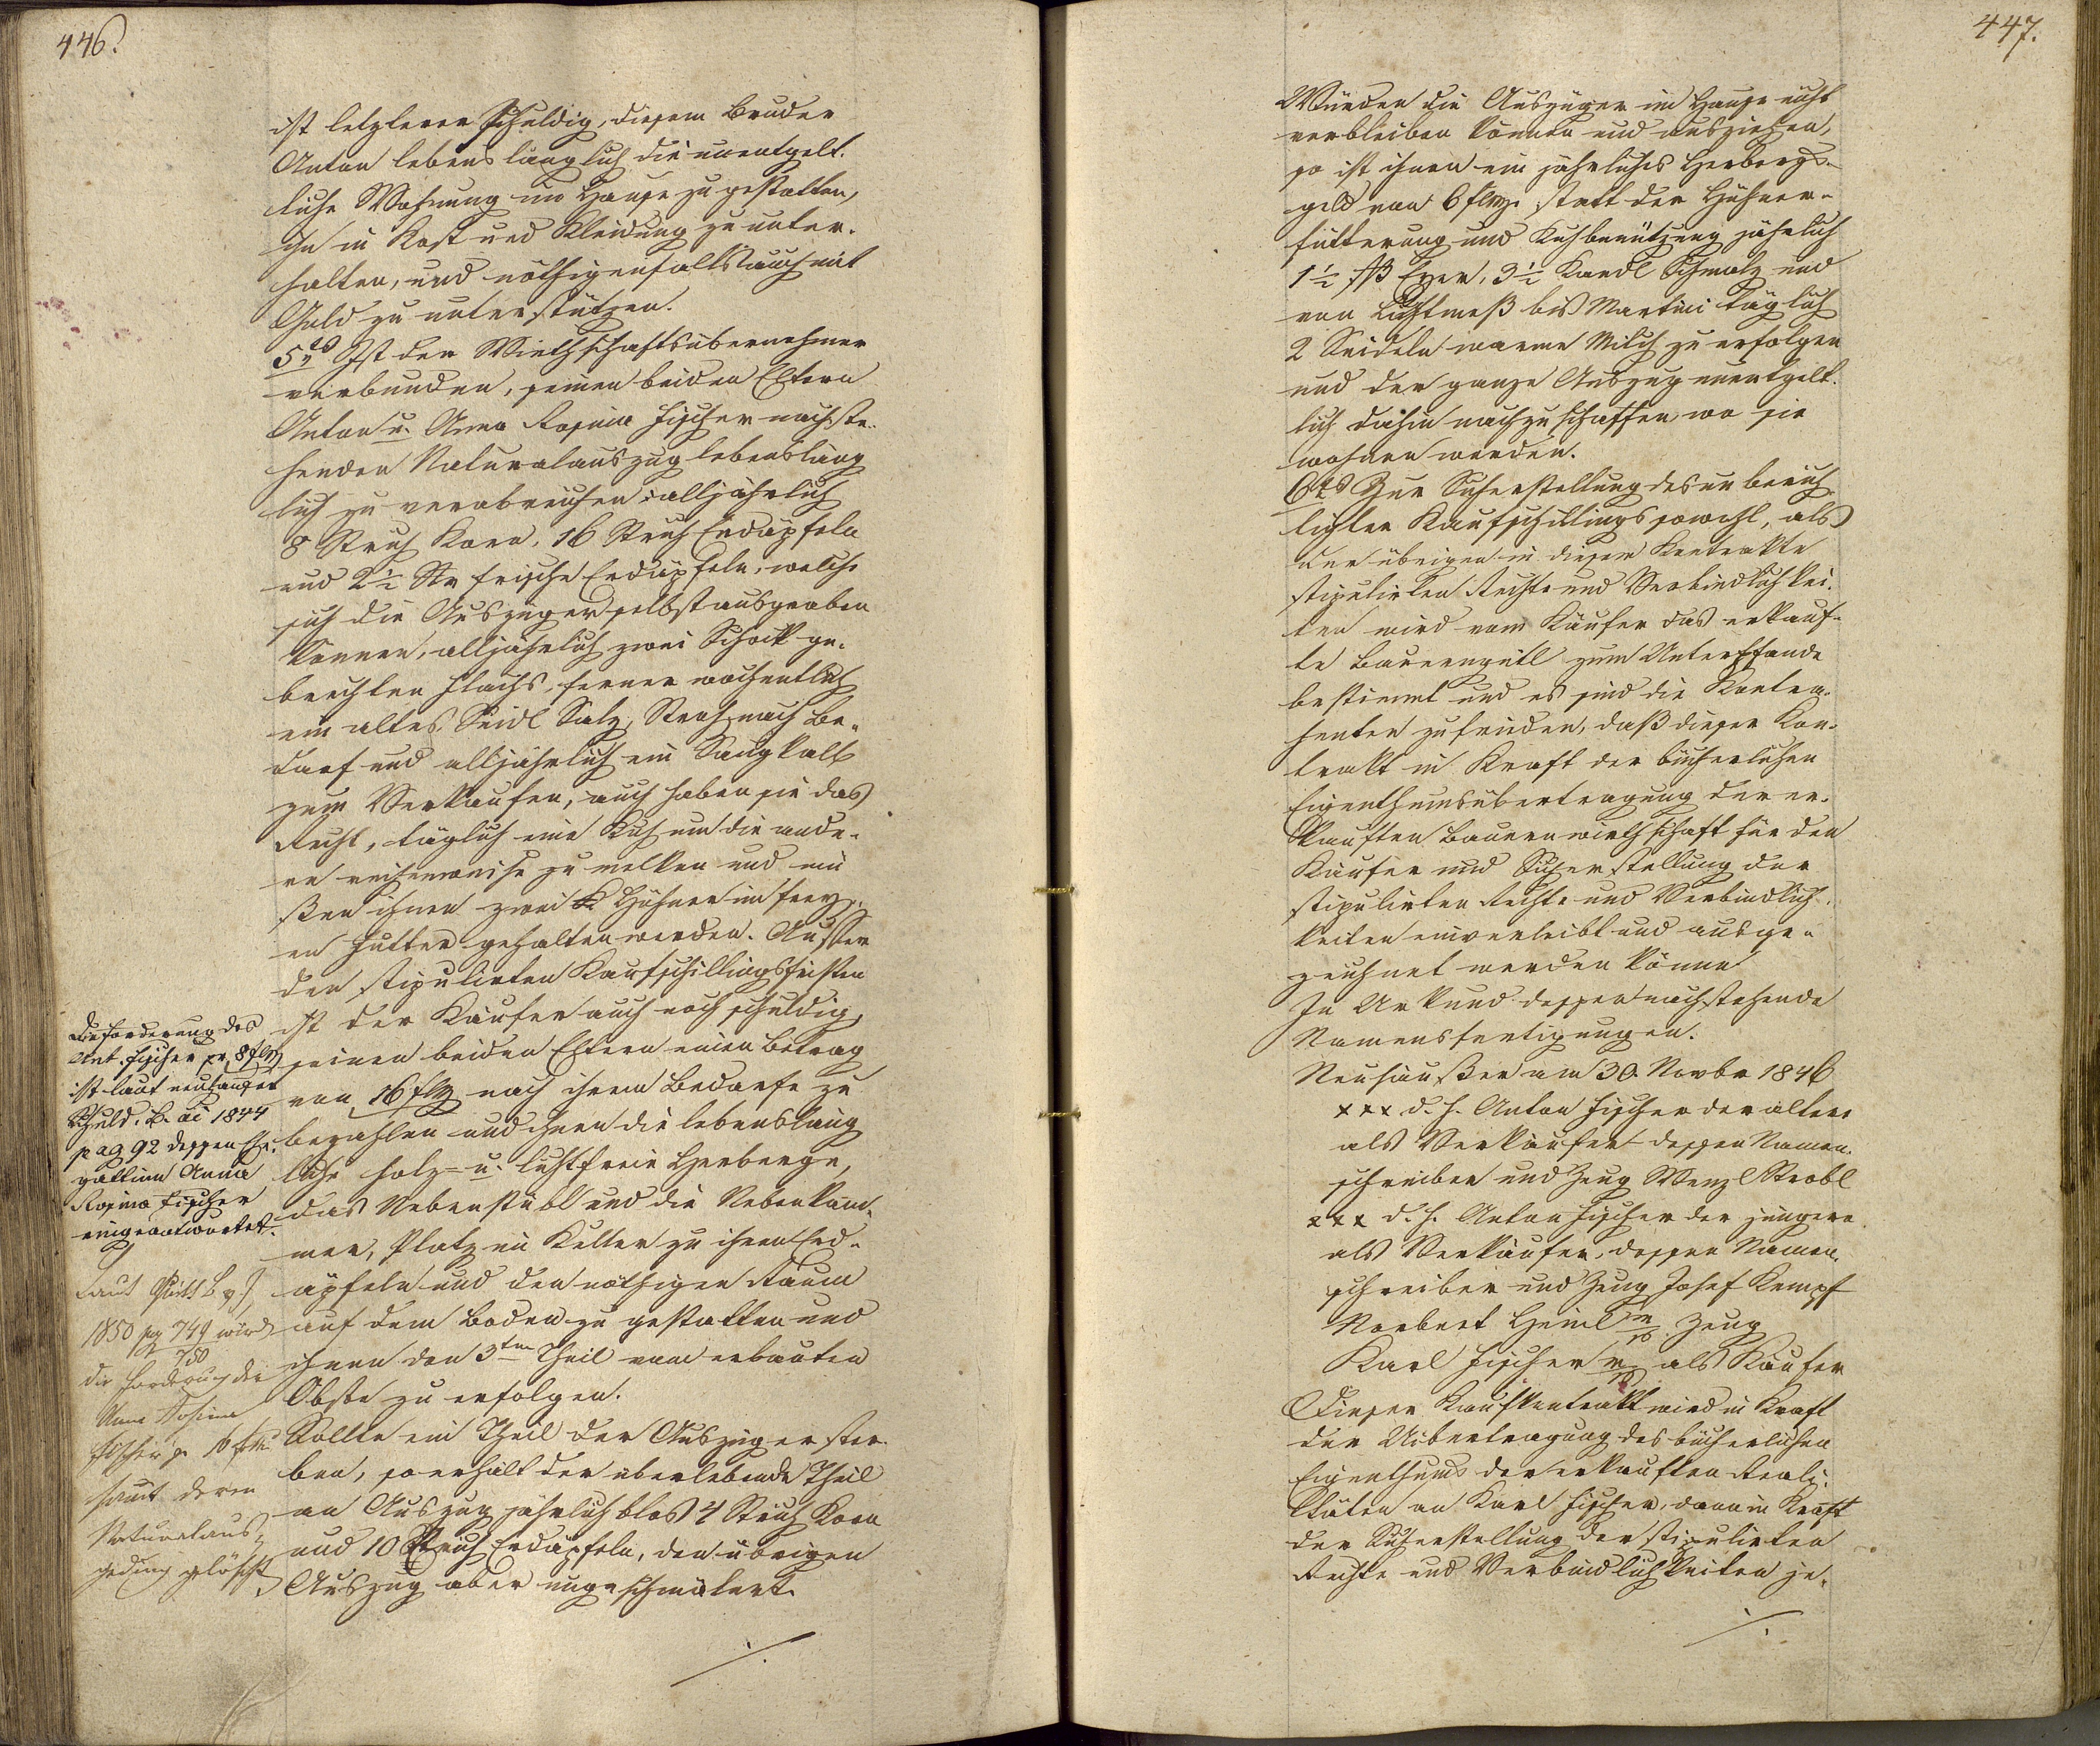 446.
ist letzterer schuldig, diesem Bruder
Anton lebenslänglich die unentgelt-
liche Wohnung im Hause zu gestatten,
ihn in Kost und Kleidung zu unter-
halten, und nöthigenfalls auch mit
Geld zu unterstützen.
5tes Ist der Wirthschaftsübernehmer
verbunden, seinen beiden Eltern
Anton u. Anna Rosina Fischer nachste-
henden Naturalauszug lebensläng
lich zu verabreichen: alljährlich
8 Strich Korn, 16 Strich Erdäpfeln
und 2½ Str frische Erdäpfeln, welche
sich die Auszüger selbst ausgraben
können, alljährlich zwei Schock ge-
brechten Flachs, ferner wochentlich
ein altes Seidl Salz, Stroh nach Be-
darf und alljährlich ein Saugkalb
zum Verkaufen, auch haben sie das
Recht, täglich eine Kuh um die ande-
re reihenweise zu melken und mü
ßen ihnen zwei Hühner im frey-
en Futter gehalten werden. Ausser
den stipulirten Kaufschillingsfristen
ist der Käufer auch noch schuldig,
seinen beiden Eltern einen Betrag
von 16 flCMz nach ihrem Bedarfe zu
bezahlen und ihnen die lebensläng
liche holz- u. lichtfreie Herberge,
das Nebenstübl und die Nebenkam-
mer, Platz im Keller zu ihren Erd-
äpfeln und den nöthigen Raum
auf dem Boden zu gestatten und
ihnen den 3ten Theil vom erbauten
Obste zu erfolgen.
Sollte ein Theil der Auszüger ster-
ben, so erhält der überlebende Theil
an Auszug jährlich blos 4 Strich Korn
und 10 Strich Erdäpfeln, den übrigen
Auszug aber ungeschmälert.
./.
Die Forderung des
Ant. Fischer pr 8 flCMz
ist laut neuhauser
Schuld. B. ai 1844
pag 92 dessen Ehe-
gattinn Anna
Rosina Fischer
eingeantwortet.
Laut
1850 pg 749 wird
750
die Forderung der
Anna Rosina
Fischer pr 16 f
samt deren
Naturalaus-
geding gelöscht
447.
Würden die Auszüger im Hause nicht
verbleiben können und ausziehen,
so ist ihnen ein jährliches Herbergs-
geld von 6 flCMz. statt der Hühner-
fütterung und Kuhbenützung jährlich
1½ ß Eyer, 3½ Kandl Schmalz und
von Lichtmeß bis Martini täglich
2 Seideln warme Milch zu erfolgen
und der ganze Auszug unentgelt-
lich dahin nachzuschaffen, wo sie
wohnen werden.
6tes Zur Sicherstellung des unberich
tigten Kaufschillings sowohl, als
der übrigen in diesem Kontrakte
stipulirten Rechte und Verbindlichkei-
ten wird vom Käufer das erkauf-
te Bauerngütl zum Unterpfande
bestimmt und es sind die Kontra-
henten zufrieden, daß dieser Kon-
trakt in Kraft der bücherlichen
Eigenthumsübertragung der er-
kauften Bauernwirthschaft für den
Käufer und Sicherstellung der
stipulirten Rechte und Verbindlich-
keiten einverleibt und ausge-
zeichnet werden könne
In Urkund dessen nachstehende
Namensfertigungen.
Neuhäußer am 30. Novbr 1846
xxx d. h. Anton Fischer der ältere
als Verkäufer dessen Namen-
schreiber und Zeug Wenzl Strobl
xxx d. h. Anton Fischer der jüngere
als Verkäufer, dessen Namen-
schreiber und Zeug Josef Kempf
Norbert Heinl m/p Zeug
Karl Fischer m/p als Käufer
Dieser Kaufkontrakt wird in Kraft
der Uibertragung des bücherlichen
Eigenthums der erkauften Reali-
täten an Karl Fischer, dann in Kraft
der Sicherstellung der stipulirten
Rechte und Verbindlichkeiten je-
./.